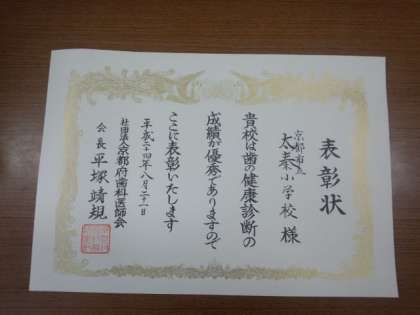 表彰状
京都市立
太秦小学校 様
貴校は歯の健康診断の
成績が優秀でありますので
ここに表彰いたします
平成二十四年八月二十一日
社団法人京都府歯科医師会
会長 平塚靖規